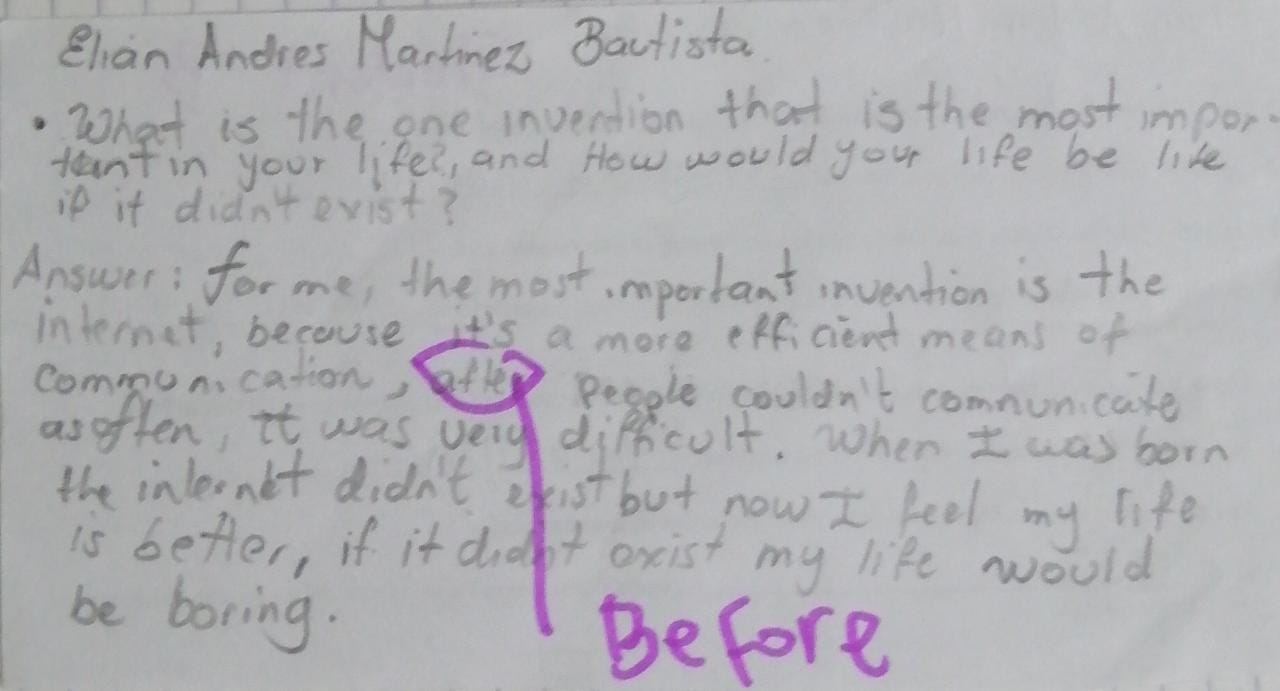 Elián Andres Martinez Bautista.
• What is the one invention that is the most impor-
tant in your life?, and How would your life be like
if it didn't exist?
Answer: for me, the most important invention is the
internet, because it's a more efficient means of
communication, after people couldn't communicate
as often, It was very difficult. When I was born
the internet didn't exist but now I feel my life
is better, if it didn't exist my life would
be boring.
Before